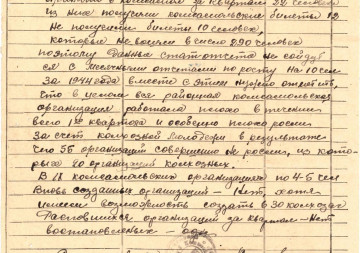 принято в комсомол за квартал 22 человека
из них получили комсомольские билеты 12
не получили билеты 10 человек,
которые не вошли в число 290 человек
поэтому данные статотчета не сойдут
ся с месячными отчетами по росту на 10 чел
За 1944 года вместе с этим нужно отметить,
что в целом вся районная комсомольская
организация работала плохо в течении
всего 1го квартала и особенно плохо росли
За счет колхозной молодежи в результате
чего 56 организаций совершенно не росли, из кото-
рых 20 организаций колхозных.
В 18 комсомольских организациях по 4-5 чел
Вновь созданных организаций – Нет, хотя
имели возможность создать в 30 колхозах
Распавшихся организаций за квартал – Нет
восстановленных –